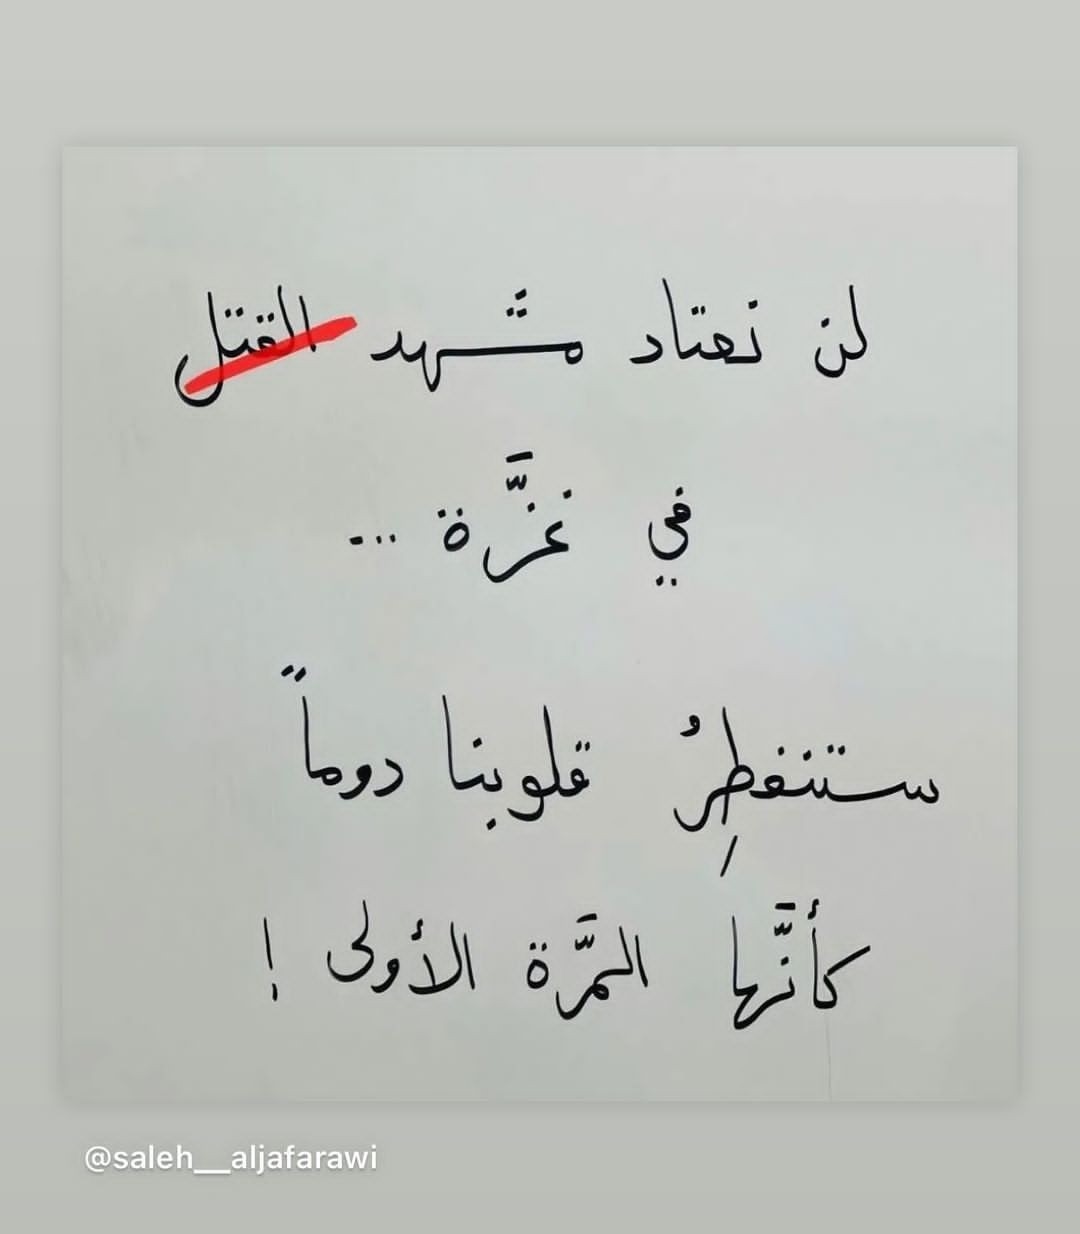 لن نعتاد مشهد القتل
في غزَّة ...
ستنفطِرُ قلوبنا دوماً
كأنَّها المرَّة الأولى !
@saleh__aljafarawi